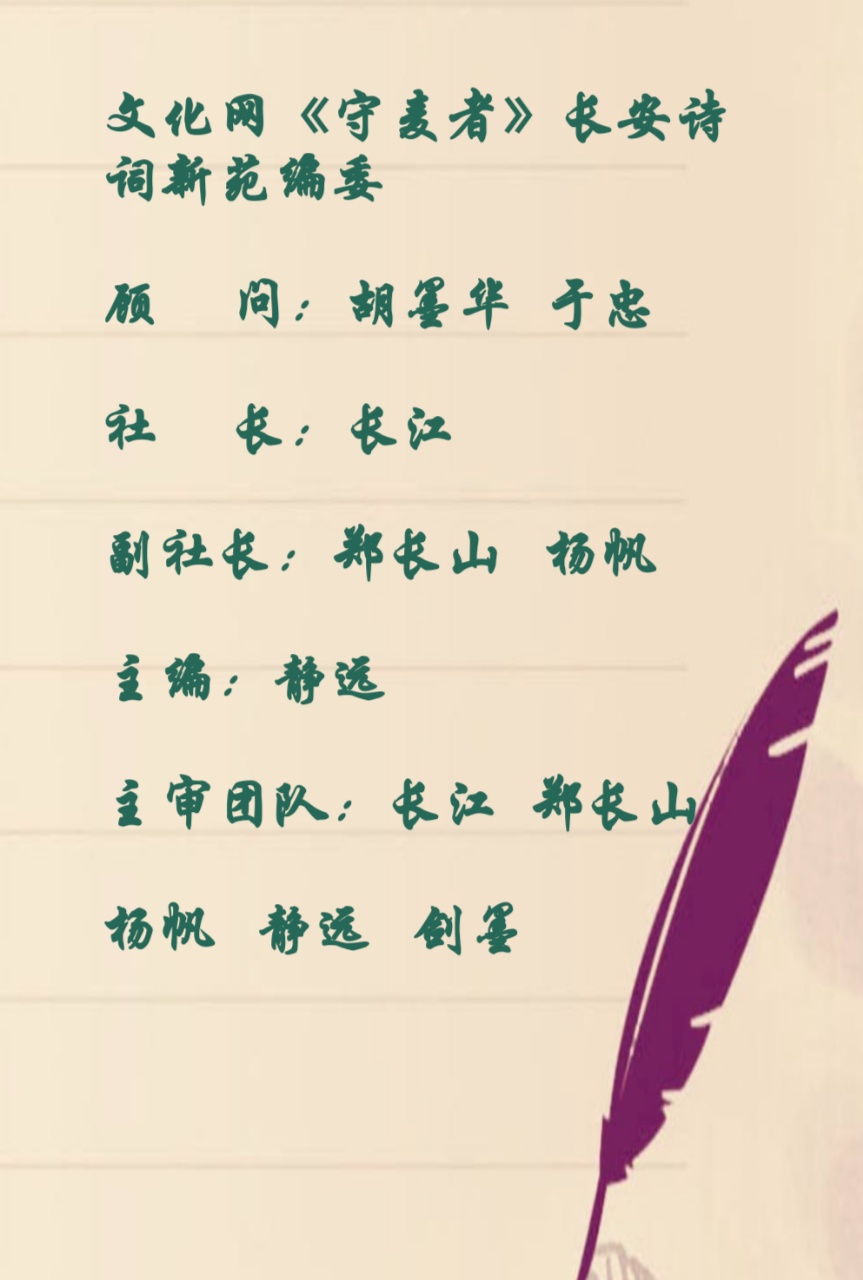 文化网《守麦者》长安诗
词新苑编委
顾 问：胡墨华 于忠
社 长：长江
副社长：郑长山 杨帆
主编：静远
主审团队：长江 郑长山
杨帆 静远 剑墨